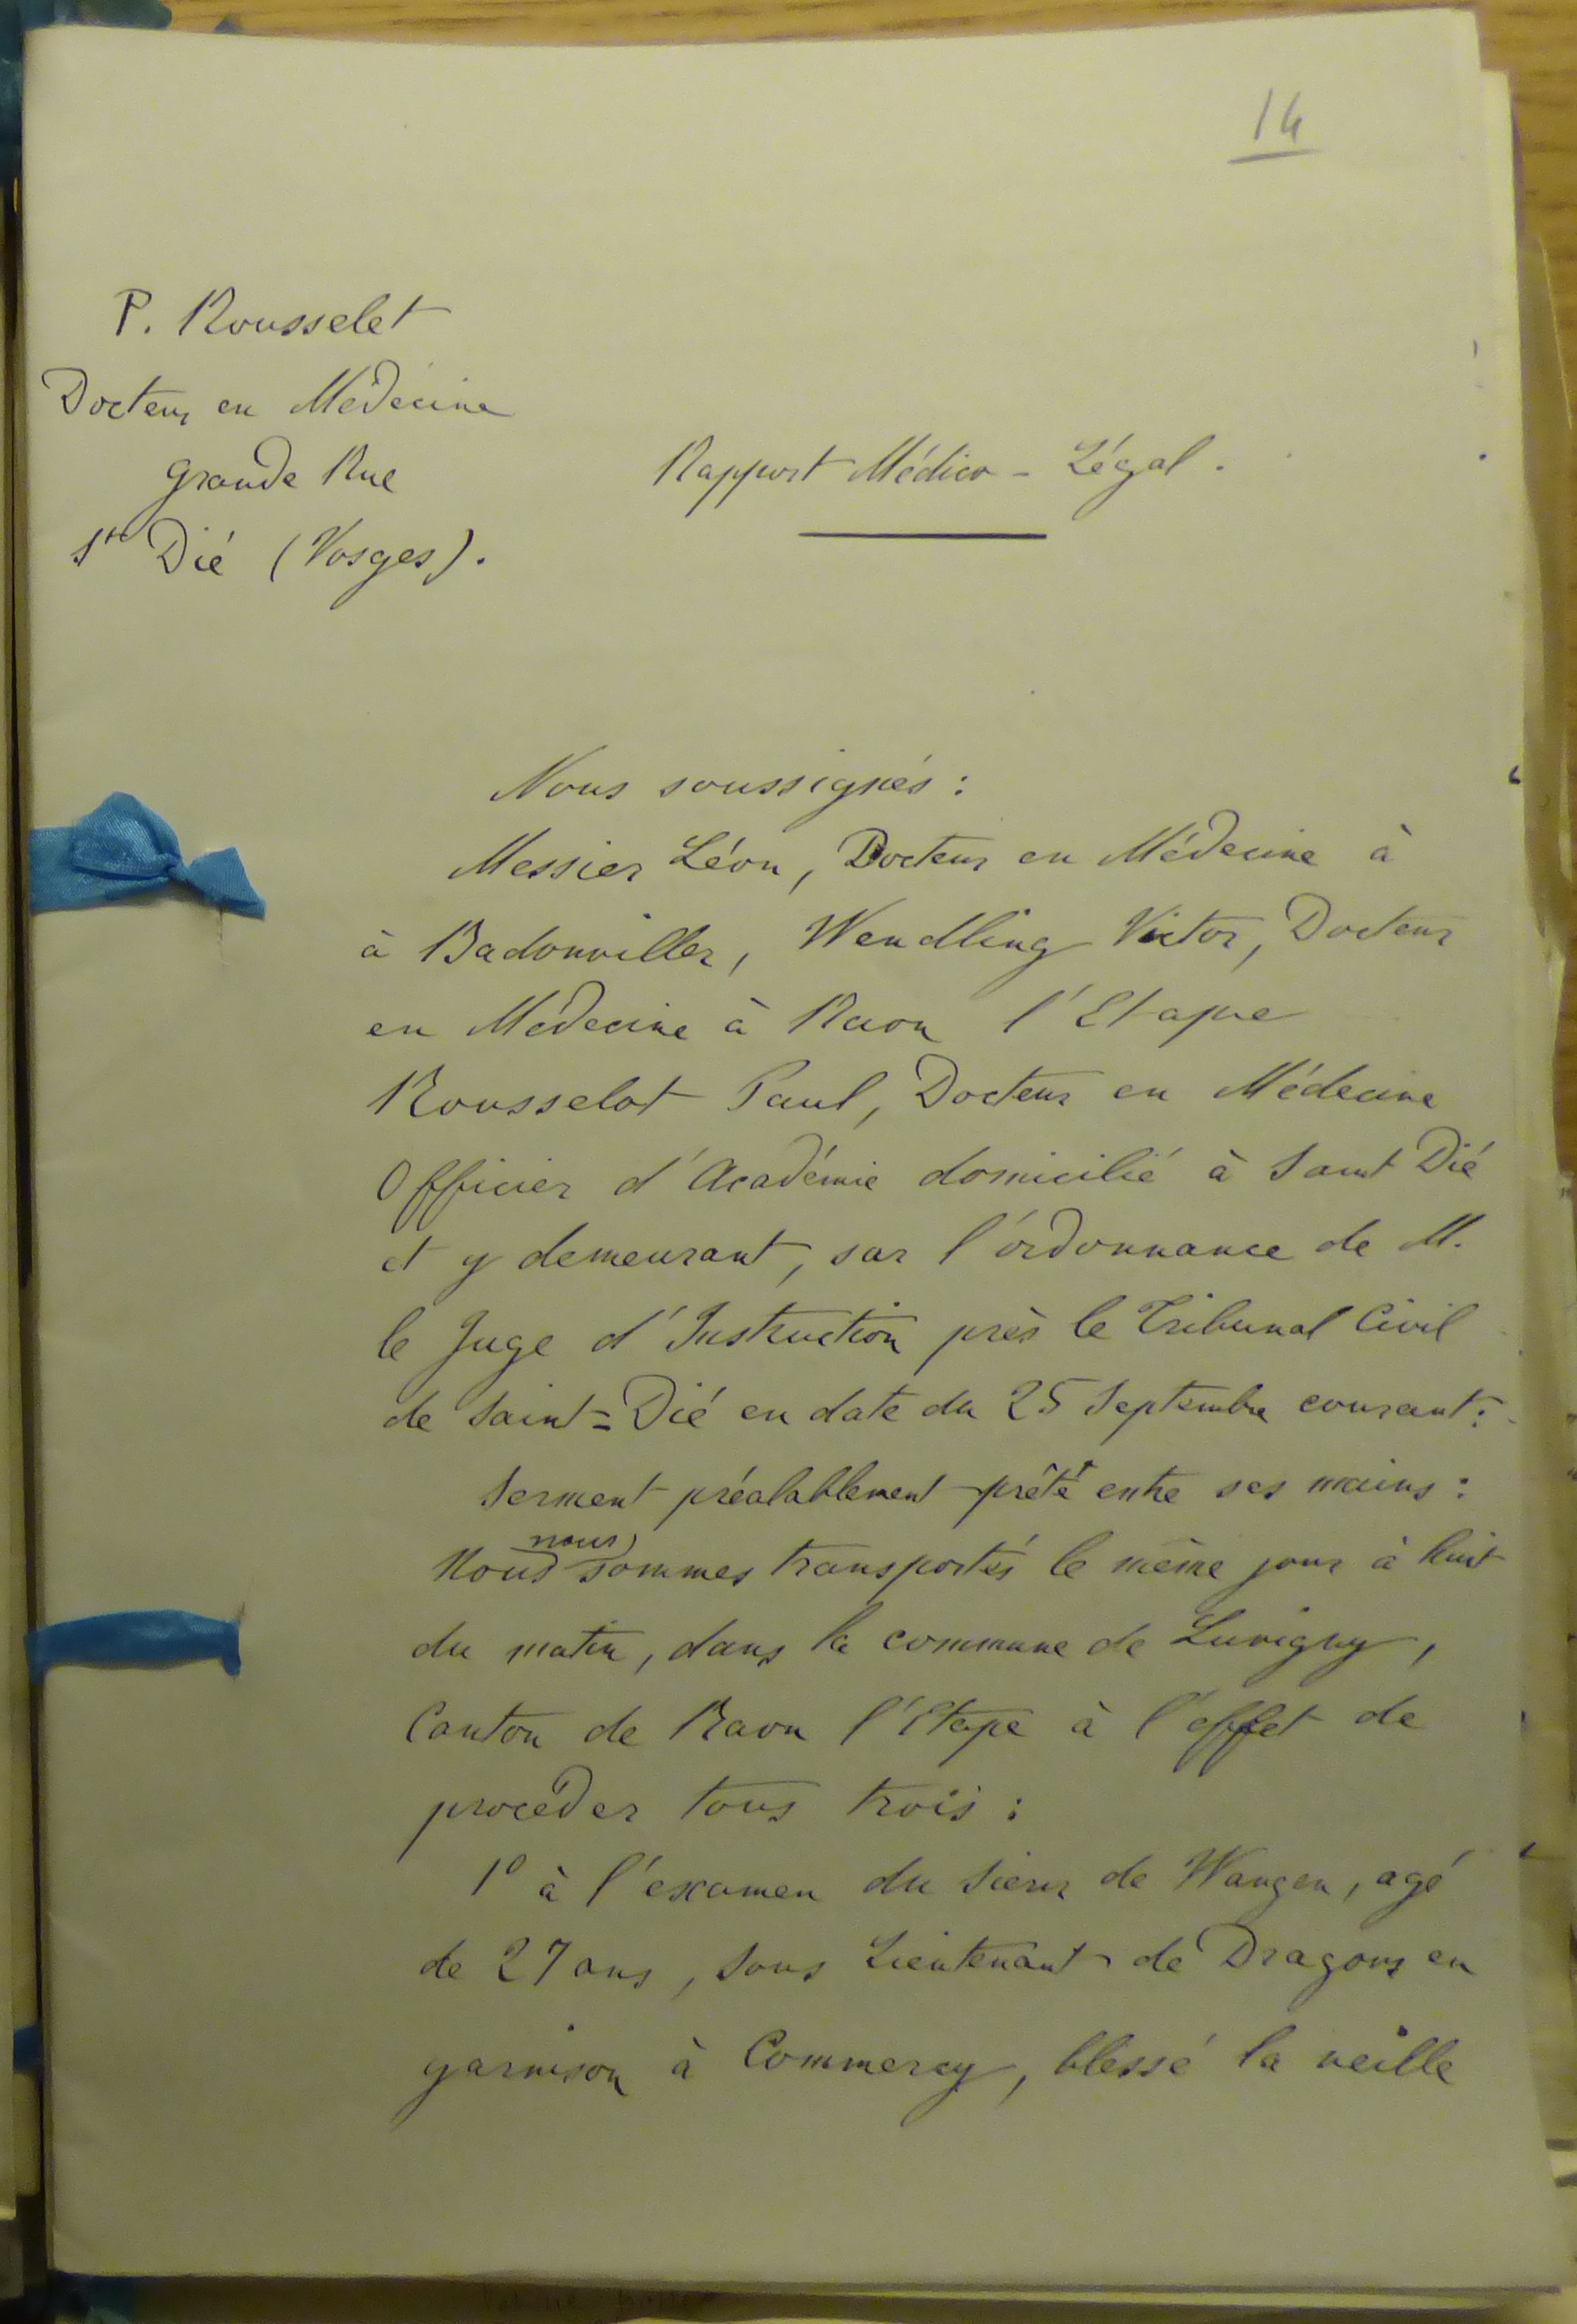 14
P. Rousselet
Docteur en Médecine
Grande Rue
St Dié (Vosges).
Rapport Médico-Légal.
Nous soussignés :
Messier Léon, Docteur en Médecine à
à Badonviller, Wendling Victor, Docteur
en Médecine à Raon l'Etape
Rousselot Paul, Docteur en Médecine
Officier d'Académie domicilié à Saint Dié
et y demeurant, sur l'ordonnance de M.
le Juge d'Instruction près le Tribunal Civil
de Saint=Dié en date du 25 Septembre courant :
Serment préalablement prêté entre ses mains :
Nous nous sommes transportés le même jour à huit
du matin, dans la commune de Luvigny,
Canton de Raon l'Etape à l'effet de
procéder tous trois :
1° à l'examen du sieur de Wangen, agé
de 27 ans, sous Lieutenant de Dragons en
garnison à Commercy, blessé la veille